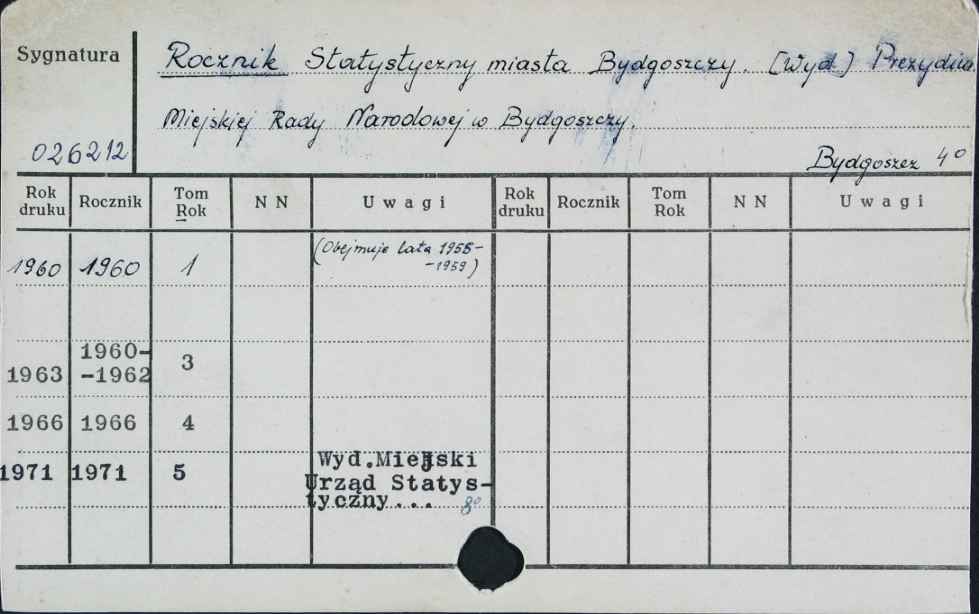 Sygnatura
Rocznik Statystyczny miasta Bydgoszczy. [Wyd.] Prezydium
Miejskiej Rady Narodowej w Bydgoszczy.
026212
Bydgoszcz 4°
Rok druku Rocznik Tom Rok NN Uwagi Rok druku Rocznik Tom Rok NN Uwagi
1960 1960 1 (Obejmuje lata 1955-
-1959)
1960-
1963 -1962 3
1966 1966 4
1971 1971 5 Wyd.Miejski
Urząd Statys-
tyczny... 8°